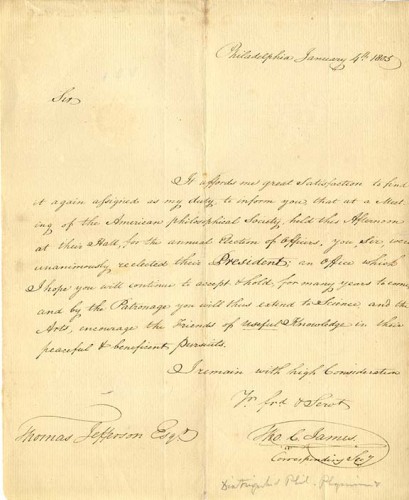 Philadelphia January 4th 1805
Sir
It affords me great Satisfaction to find
it again assigned as my duty, to inform you, that at a Meet
ing of the American philosophical Society, held this Afternoon
at their Hall, for the annual Election of Officers. you Sir, were
unanimously reelected their President; an Office which
I hope you will continue to accept & hold, for many years to come,
and by the Patronage you will thus extend to Science, and the
Arts, encourage the Friends of useful Knowledge in their
peaceful & beneficent pursuits.
I remain with high Consideration
Yr frd & Servt
Thomas Jefferson Esqr.
Tho. C. James
Corresponding Secy
Phil. Physician